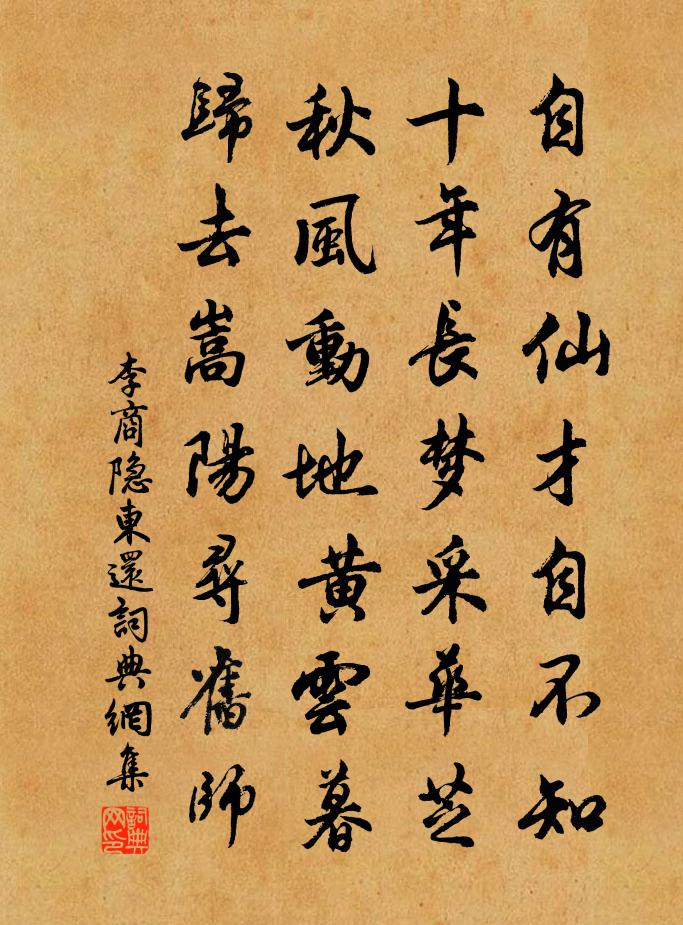 自有仙才自不知
十年長梦采華芝
秋風動地黄雲暮
歸去嵩陽尋舊師
李商隐東還詞典網集
詞典网印